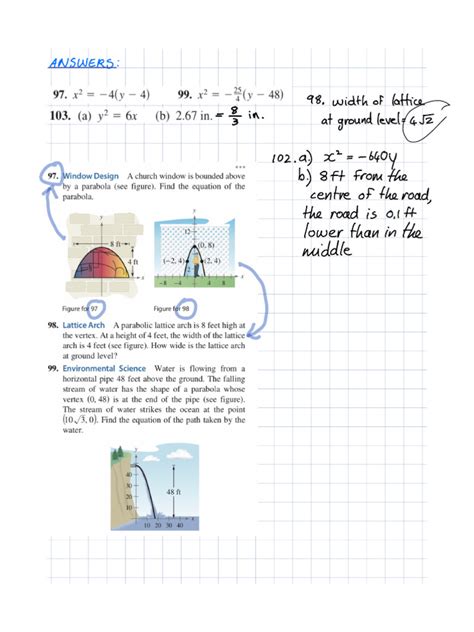 ANSWERS:
97. x² = −4(y − 4)   99. x² = −25/4(y − 48)
103. (a) y² = 6x   (b) 2.67 in. = 8/3 in.
98. width of lattice
at ground level = 4√2
102. a) x² = −640y
b) 8 ft from the
centre of the road,
the road is 0,1 ft
lower than in the
middle
97. Window Design A church window is bounded above
by a parabola (see figure). Find the equation of the
parabola.
y
8 ft
4 ft
x
y
12
(0, 8)
(−2, 4) (2, 4)
2
x
−8 −4 4 8
Figure for 97   Figure for 98
98. Lattice Arch A parabolic lattice arch is 8 feet high at
the vertex. At a height of 4 feet, the width of the lattice
arch is 4 feet (see figure). How wide is the lattice arch
at ground level?
99. Environmental Science Water is flowing from a
horizontal pipe 48 feet above the ground. The falling
stream of water has the shape of a parabola whose
vertex (0, 48) is at the end of the pipe (see figure).
The stream of water strikes the ocean at the point
(10√3, 0). Find the equation of the path taken by the
water.
y
40
30
20
10
48 ft
x
10 20 30 40